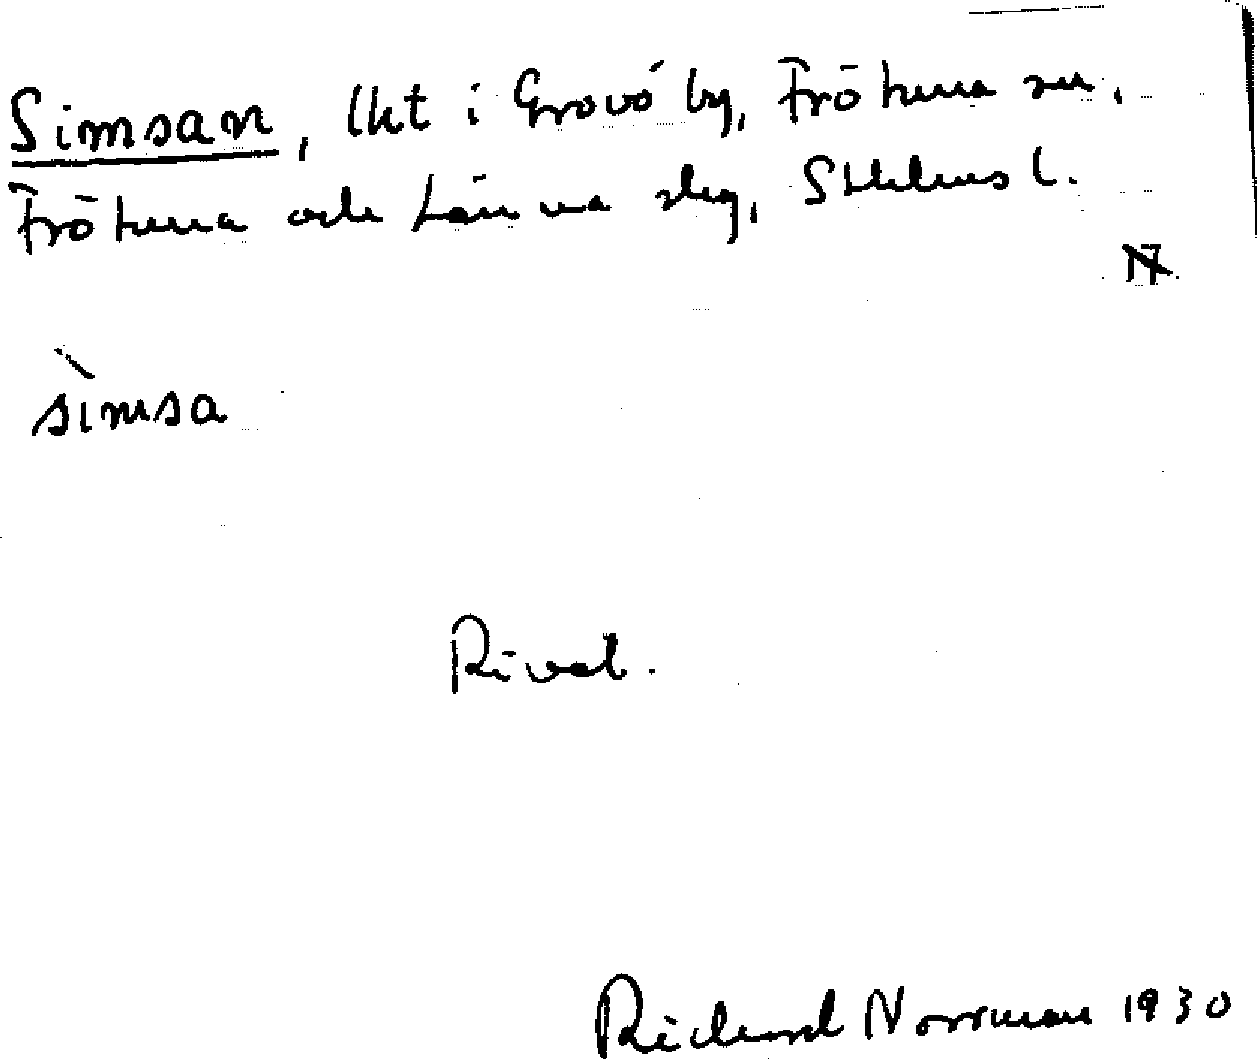 Simsan, lkt i Grovö by, Frötuna sn,
Frötuna och Länna slg, Sthlms l.
N
sìmsa
Rival.
Richard Norrman 1930